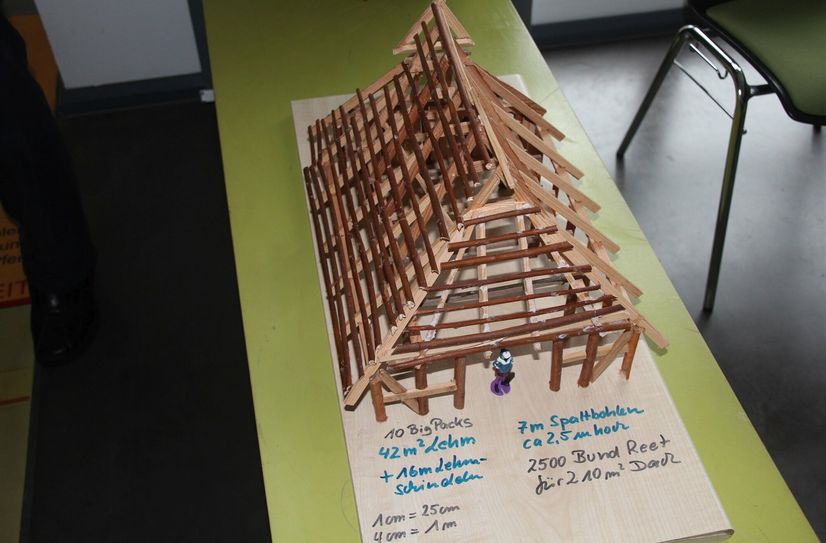 10 Big Packs
42 m² Lehm
+ 16m Lehm-
schindeln
1cm = 25cm
4cm = 1m
7m Spaltbohlen
ca 2,5 m hoch
2500 Bund Reet
für 210 m² Dach
EIT